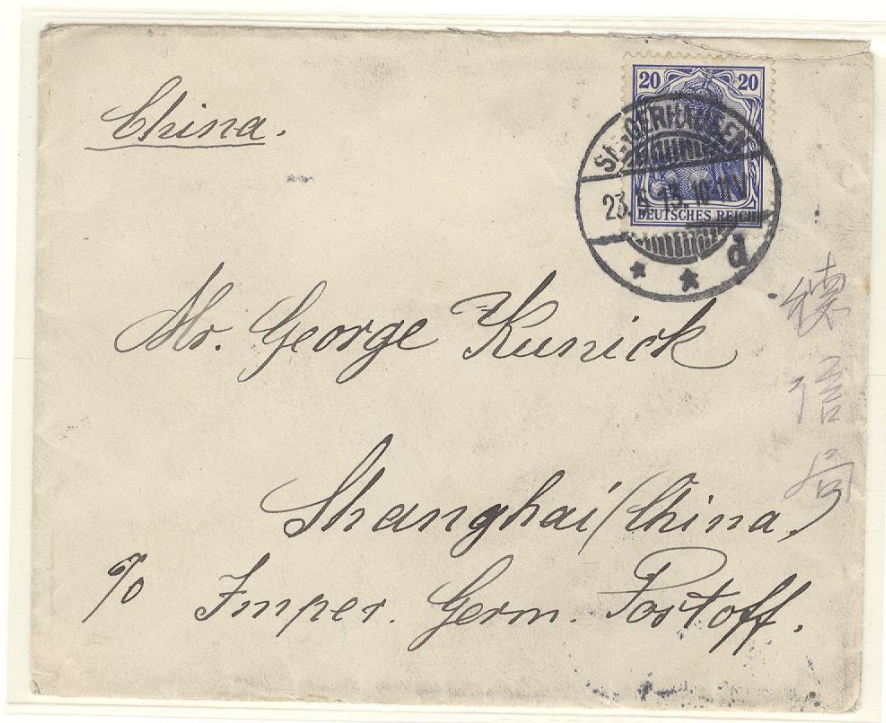 China.
20 20
DEUTSCHES REICH
23.5.13. 10-11V
d
Mr. George Kunick
Shanghai (China.)
c/o Imper. Germ. Postoff.
信